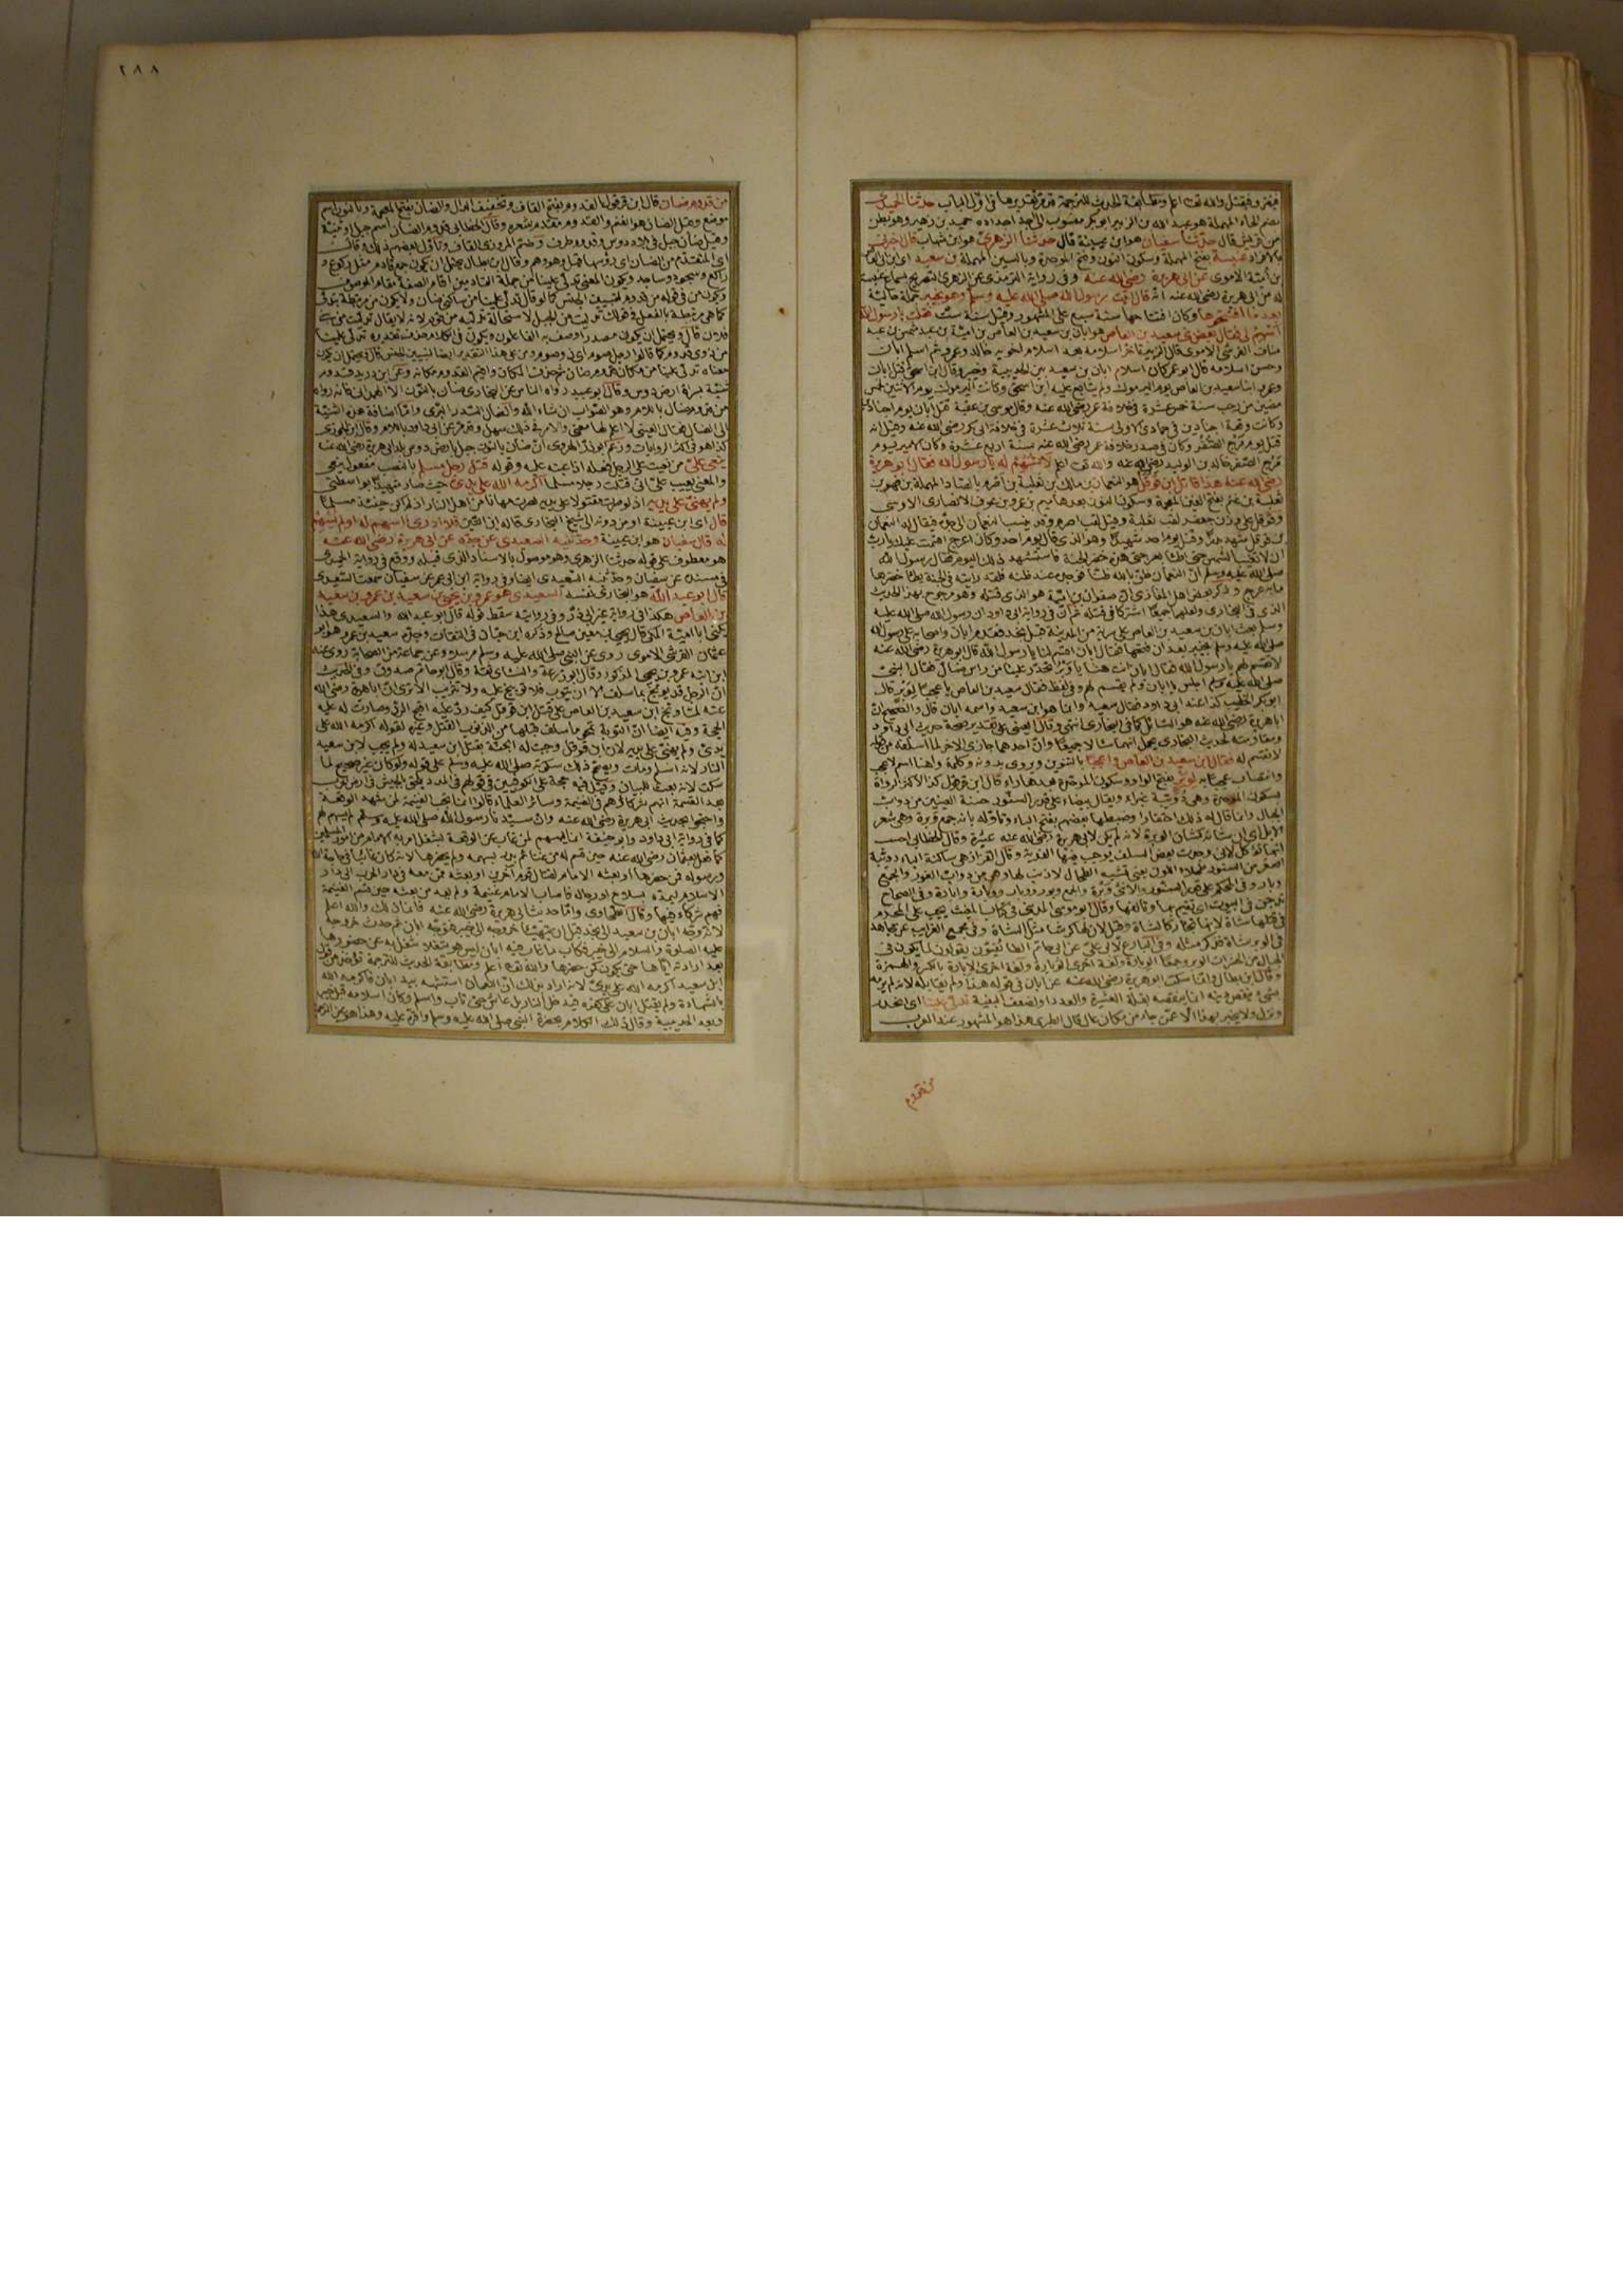 فيغزو فيقتل والله تعالى اعلم ومطابقة الحديث للترجمة قد مر تقريرها في اول الباب حدثنا الحميدي
بضم الحاء المهملة هو عبد الله بن الزبير ابو بكر منسوب الى احد اجداده حميد بن زهير وهو بطن
من قريش قال حدثنا سفيان هو ابن عيينة قال حدثنا الزهري هو ابن شهاب قال اخبرني
عنبسة بفتح المهملة وسكون النون وفتح الموحدة وبالسين المهملة بن سعيد
بن أمية الاموى عن ابى هريرة رضى الله عنه وفى رواية عن الزهرى التصريح بسماع عنبسة
له من ابى هريرة رضى الله عنه انه قال اتيت رسول الله صلى الله عليه وسلم وهو بخيبر جملة حالية
بعد ما افتتحوها وكان افتتاحها سنة سبع على المشهور وقيل سنة ست فقلت يا رسول الله
اسهم لى فقال بعض بنى سعيد بن العاص هو ابان بن سعيد بن العاص بن امية بن عبد شمس بن عبد
مناف القرشى الاموى قال الزبير تأخر اسلامه بعد اسلام اخويه خالد وعمرو ثم اسلم ابان
وحسن اسلامه قال ابو عمر كان اسلام ابان بن سعيد بين الحديبية وخيبر وقال ابن اسحق قتل ابان
وعمرو ابنا سعيد بن العاص يوم اليرموك ولم يتابع عليه ابن اسحق وكانت اليرموك يوم الاثنين لخمس
مضين من رجب سنة خمس عشرة فى خلافة عمر رضى الله عنه وقال موسى بن عقبة قتل ابان يوم اجنادين
وكانت وقعة اجنادين فى جمادى الاولى سنة ثلاث عشرة فى خلافة ابى بكر رضى الله عنه وقيل انه
قتل يوم مرج الصفر وكان فى صدر خلافة عمر رضى الله عنه سنة اربع عشرة وكان الامير يوم
مرج الصفر خالد بن الوليد رضى الله عنه والله تعالى اعلم لا تسهم له يا رسول الله فقال ابو هريرة
رضى الله عنه هذا قاتل ابن قوقل هو النعمان بن مالك بن ثعلبة بن اصرم بالصاد المهملة بن فهر بن
ثعلبة بن غنم بفتح الغين المعجمة وسكون النون بعدها ميم بن عمرو بن عوف الانصارى الاوسى
وقوقل على وزن جعفر لقب ثعلبة وقيل لقب اصرم وقد ينسب النعمان الى جده فيقال له النعمان
بن قوقل شهد بدرا وقتل يوم احد شهيدا وهو الذى قال يوم احد وكان اعرج اقسمت عليك يا رب
ان لا تغيب الشمس حتى اطأ بعرجتى هذه خضر الجنة فاستشهد ذلك اليوم فقال رسول الله
صلى الله عليه وسلم ان النعمان ظن بالله ظنا فوجده عند ظنه فلقد رأيته فى الجنة يطأ خضرها
ما به عرج وذكر بعض اهل المغازى ان صفوان بن امية هو الذى قتله وهو مرجوح بهذا الحديث
الذى فى البخارى ولعلهما جميعا اشتركا فى قتله ثم ان فى رواية ابى داود ان رسول الله صلى الله عليه
وسلم بعث ابان بن سعيد بن العاص على سرية من المدينة قبل نجد فقدم ابان واصحابه على رسول الله
صلى الله عليه وسلم بخيبر بعد ان فتحها فقال ابان اقسم لنا يا رسول الله قال ابو هريرة رضى الله عنه
لا تقسم لهم يا رسول الله فقال ابان انت هنا يا وبر تحدر علينا من راس ضال فقال النبى
صلى الله عليه وسلم اجلس يا ابان ولم يقسم لهم وفى لفظ فقال سعيد بن العاص يا عجبا لوبر قال
ابو بكر الخطيب كذا عند ابى داود فقال سعيد وانما هو ابن سعيد واسمه ابان قال والصحيح ان
ابا هريرة رضى الله عنه هو السائل كما فى البخارى انتهى وقال العينى على تقدير صحة حديث ابى داود
ومقاومته لحديث البخارى يحمل انهما سألا جميعا وان احدهما جازى الاخر لما اسلفه من قوله
لا تقسم له فقال ابن سعيد بن العاص واعجبا بالتنوين ويروى بدونه وكلمة وا هنا اسم لاعجب
وانتصاب عجبا به لوبر بفتح الواو وسكون الموحدة بعدها راء قال ابن قرقول كذا لاكثر الرواة
بسكون الموحدة وهى دويبة غبراء ويقال بيضاء على قدر السنور حسنة العينين من دواب
الجبال وانما قال له ذلك احتقارا وضبطها بعضهم بفتح الباء وتأوله بانه جمع وبرة وهى شعر
الابل اى ان شأنه كشأن الوبرة لانه لم يكن لابى هريرة رضى الله عنه عشيرة وقال الخطابى احسب
انها تؤكل لانى وجدت بعض السلف يوجب فيها الفدية وقال القزاز هى ساكنة الباء دويبة
اصغر من السنور طحلاء اللون يعنى تشبه الطحال لا ذنب لها وهى من دواب الغور والجمع
وبار وفى المحكم على قدر السنور والانثى وبرة والجمع وبر ووبور ووبار ووبارة وابارة وفى الصحاح
ترجن فى البيوت اى تقيم بها وتألفها وقال ابو موسى المدينى فى كتاب المغيث يجب على المحرم
فى قتلها شاة لانها تجتر كالشاة وقيل لان لها كرشا مثل الشاة وفى مجمع الغرائب عن مجاهد
فى الوبر شاة فذكر مثله وفى البارع لابى على عن ابى حاتم الطائيون يقولون لما يكون فى
الجبال من الحشرات الوبر وجمعها الوبارة ولغة اخرى الوبارة ولغة اخرى الابارة بالكسر والهمزة
وقال ابن بطال وانما سكت ابو هريرة رضى الله عنه عن ابان فى قوله هذا ولم يقابله لانه لم يرمه
بشىء ينقص دينه انما ينقصه بقلة العشيرة والعدد او لضعف المنة تدلى علينا اى انحدر
ونزل ولا يخبر بهذا الا عمن جاء من مكان عال قال الطبرى هذا هو المشهور عند العرب
من قدوم
٢٨٨
من قدوم ضان قال ابن قرقول القدوم بفتح القاف وتخفيف الدال والضان بفتح المعجمة وبالنون اسم
موضع وقيل الضان هو الغنم والقدوم مقدم شعره وقال الخطابى قدوم الضان اسم جبل او ثنية
وقيل ضان جبل فى بلاد دوس وقدوم طرف وضم المروزى القاف وتأول بعضهم ذلك وقال
اى المتقدم من الضان اى رؤسها قيل وهو وهم وقال ابن بطال يحتمل ان يكون جمع قادم مثل ركوع و
راكع وسجود وساجد ويكون المعنى تدلى علينا من جملة القادمين اقام الصفة مقام الموصوف
ويكون من فى قوله من قدوم لتبيين الجنس كما لو قال تدلى علينا من ساكنى ضان ولا يكون من مرتبطة بتدلى
كما هى مرتبطة بالفعل فى قولك تدليت من الجبل لاستحالة تدليه من قوم لانه لا يقال تدليت من بنى
فلان قال ويحتمل ان يكون مصدرا وصف به الفاعلون ويكون فى الكلام حذف تقديره تدلى علينا
من ذوى قدوم كما قالوا رجل صوم اى ذو صوم ومن على هذا التقدير ايضا لتبيين الجنس قال ويحتمل ان يكون
معناه تدلى علينا من مكان قدوم ضان ثم حذف المكان واقيم القدوم مكانه وعن ابن دريد قدوم
ثنية بسراة ارض دوس وقال ابو عبيد رواه الناس عن البخارى ضان بالنون الا الهمدانى فانه رواه
من قدوم ضال باللام وهو الصواب ان شاء الله والضال السدر البرى واما اضافة هذه الثنية
الى الضال فقال العينى لا اعلم لها معنى والامر فى ذلك سهل وقد مر عن ابى داود باللام وقال ابن الجوزى
كذا هو فى اكثر الروايات وزعم ابو ذر الهروى ان ضان بالنون جبل بارض دوس بلد ابى هريرة رضى الله عنه
ينعى على من نعيت على الرجل فعله اذا عبته عليه وقوله قتل رجل مسلم بالنصب مفعول ينعى
والمعنى يعيب على انى قتلت رجلا مسلما اكرمه الله على يدى حيث صار شهيدا بواسطتى
ولم يهنى على يديه اذ لو صرت مقتولا على يديه لصرت مهانا من اهل النار اذ لم اكن حينئذ مسلما
قال اى ابن عيينة او من دونه الى شيخ البخارى قاله ابن التين فلا ادرى اسهم له او لم يسهم
له قال سفيان هو ابن عيينة وحدثنيه السعيدى عن جده عن ابى هريرة رضى الله عنه
هو معطوف على قوله حدثنا الزهرى وهو موصول بالاسناد الذى قبله ووقع فى رواية الحميدى
فى مسنده عن سفيان وحدثنيه السعيدى ايضا وفى رواية ابن ابى عمر عن سفيان سمعت السعيدى
قال ابو عبد الله هو البخارى نفسه السعيدى هو عمرو بن يحيى بن سعيد بن عمرو بن سعيد
بن العاص هكذا فى رواية غير ابى ذر وفى روايته سقط قوله قال ابو عبد الله والسعيدى هذا
يكنى ابا امية المكى قال يحيى بن معين صالح وذكره ابن حبان فى الثقات وجده سعيد بن عمرو هو ابو
عثمان القرشى الاموى روى عن النبى صلى الله عليه وسلم مرسلا وعن جماعة من الصحابة روى عنه
ابن ابنه عمرو بن يحيى المذكور وقال ابو زرعة والنسائى ثقة وقال ابو حاتم صدوق وفى الحديث
ان الرجل قد يوبخ بما سلف الا ان يتوب فلا توبيخ عليه ولا تثريب الا ترى ان ابا هريرة رضى الله
عنه لما وبخ ابن سعيد بن العاص على قتل ابن قوقل كيف رد عليه اقبح الرد وصارت له عليه
الحجة وفيه ايضا ان التوبة تمحو ما سلف قبلها من الذنوب القتل وغيره لقوله اكرمه الله على
يدى ولم يهنى على يديه لان ابن قوقل وجبت له الجنة بقتل ابن سعيد له ولم يجب لابن سعيد
النار لانه اسلم ويصحح ذلك سكوته صلى الله عليه وسلم على قوله ولو كان غير صحيح لما
سكت لانه بعث للبيان وقيل فيه حجة على الكوفيين فى قولهم فى المدد يلحق بالجيش فى ارض الحرب
بعد القسمة انهم شركاؤهم فى الغنيمة وسائر العلماء قالوا انما تجب الغنيمة لمن شهد الوقعة
واحتجوا بحديث ابى هريرة رضى الله عنه وان رسول الله صلى الله عليه وسلم لم يسهم لهم
كما فى رواية ابى داود وابو حنيفة انما يسهم لمن غاب عن الوقعة لشغل امر به الامام من امور المسلمين
كما فعل بعثمان رضى الله عنه حين قسم له من غنائم بدر بسهمه ولم يحضرها لانه كان غائبا فى حاجة الله
ورسوله فمن حضرها او بعثه الامام لقتال قوم آخرين او بعثه ممن معه فى دار الحرب الى دار
الاسلام ليمده بسلاح او رجال فاصاب الامام غنيمة ولم يعد من بعثه حين قسم الغنيمة
فهم شركاء فيها وقال الطحاوى واما حديث ابى هريرة رضى الله عنه فانما ذلك والله اعلم
لانه وجه ابان بن سعيد الى نجد قبل ان يتهيأ خروجه الى خيبر فتوجه ابان ثم حدث خروجه
عليه الصلوة والسلام الى خيبر فكان ما غاب فيه ابان ليس هو شغلا شغل به عن حضورها
بعد ارادته اياها حتى يكون كمن حضرها والله تعالى اعلم ومطابقة الحديث للترجمة تؤخذ من قول
ابن سعيد اكرمه الله على يدى لانه اراد بذلك ان النعمان استشهد بيد ابان فاكرمه الله
بالشهادة ولم يقتل ابان على كفره فيدخل النار بل عاش حتى تاب واسلم وكان اسلامه قبل خيبر
وبعد الحديبية وقال ذلك الكلام بحضرة النبى صلى الله عليه وسلم واقره عليه وهذا هو عين الترجمة